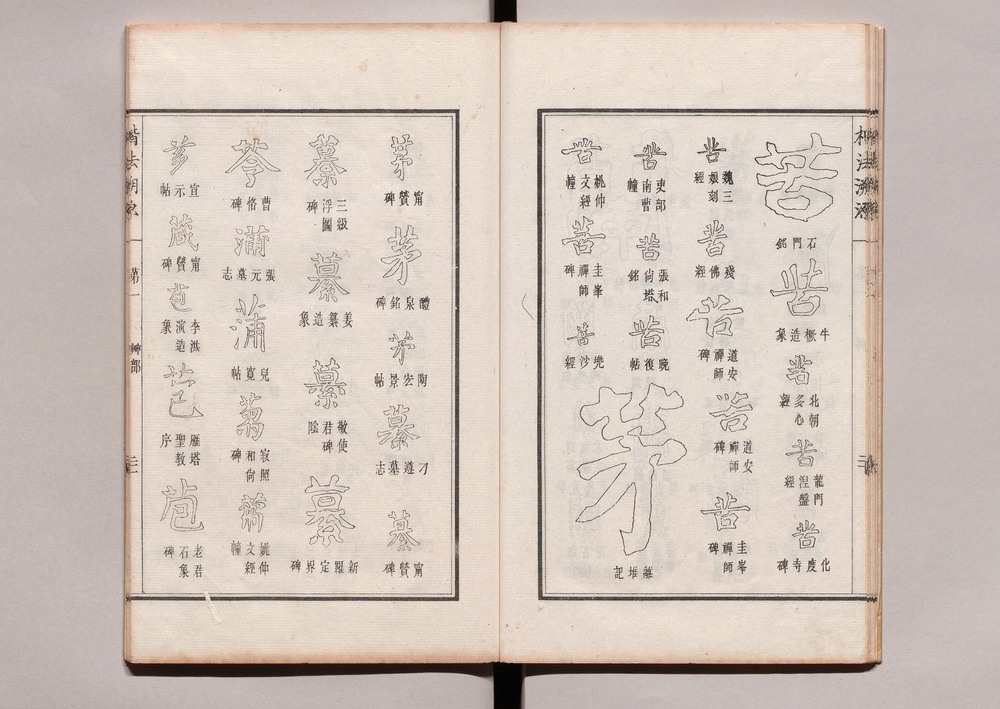 楷法溯源
苦
石門銘
苦
牛橛造象
苦
北朝多心經
苦
龍門涅盤經
苦
化度寺碑
苦
魏三娘刻經
苦
殘佛經
苦
道安禪師碑
苦
道安禪師碑
苦
圭峯禪師碑
苦
吏部南曹幢
苦
張和尙塔銘
苦
晚復帖
茅
離堆記
苦
姚仲文經幢
苦
圭峯禪師碑
苦
兜沙經
茅
甯贙碑
茅
醴泉銘碑
茅
陶宏景帖
綦
刁遵墓志
綦
甯贙碑
綦
三級浮圖碑
綦
姜纂造象
綦
敬使君碑陰
綦
新羅定界碑
苓
曹恪碑
蒲
張元墓志
蒲
兒寬帖
蒻
寂照和尙碑
姚仲文經幢
宣示帖
葴
甯贙碑
苞
李洪演造象
苞
雁塔聖教序
苞
老君石象碑
楷法溯源
第一
艸部